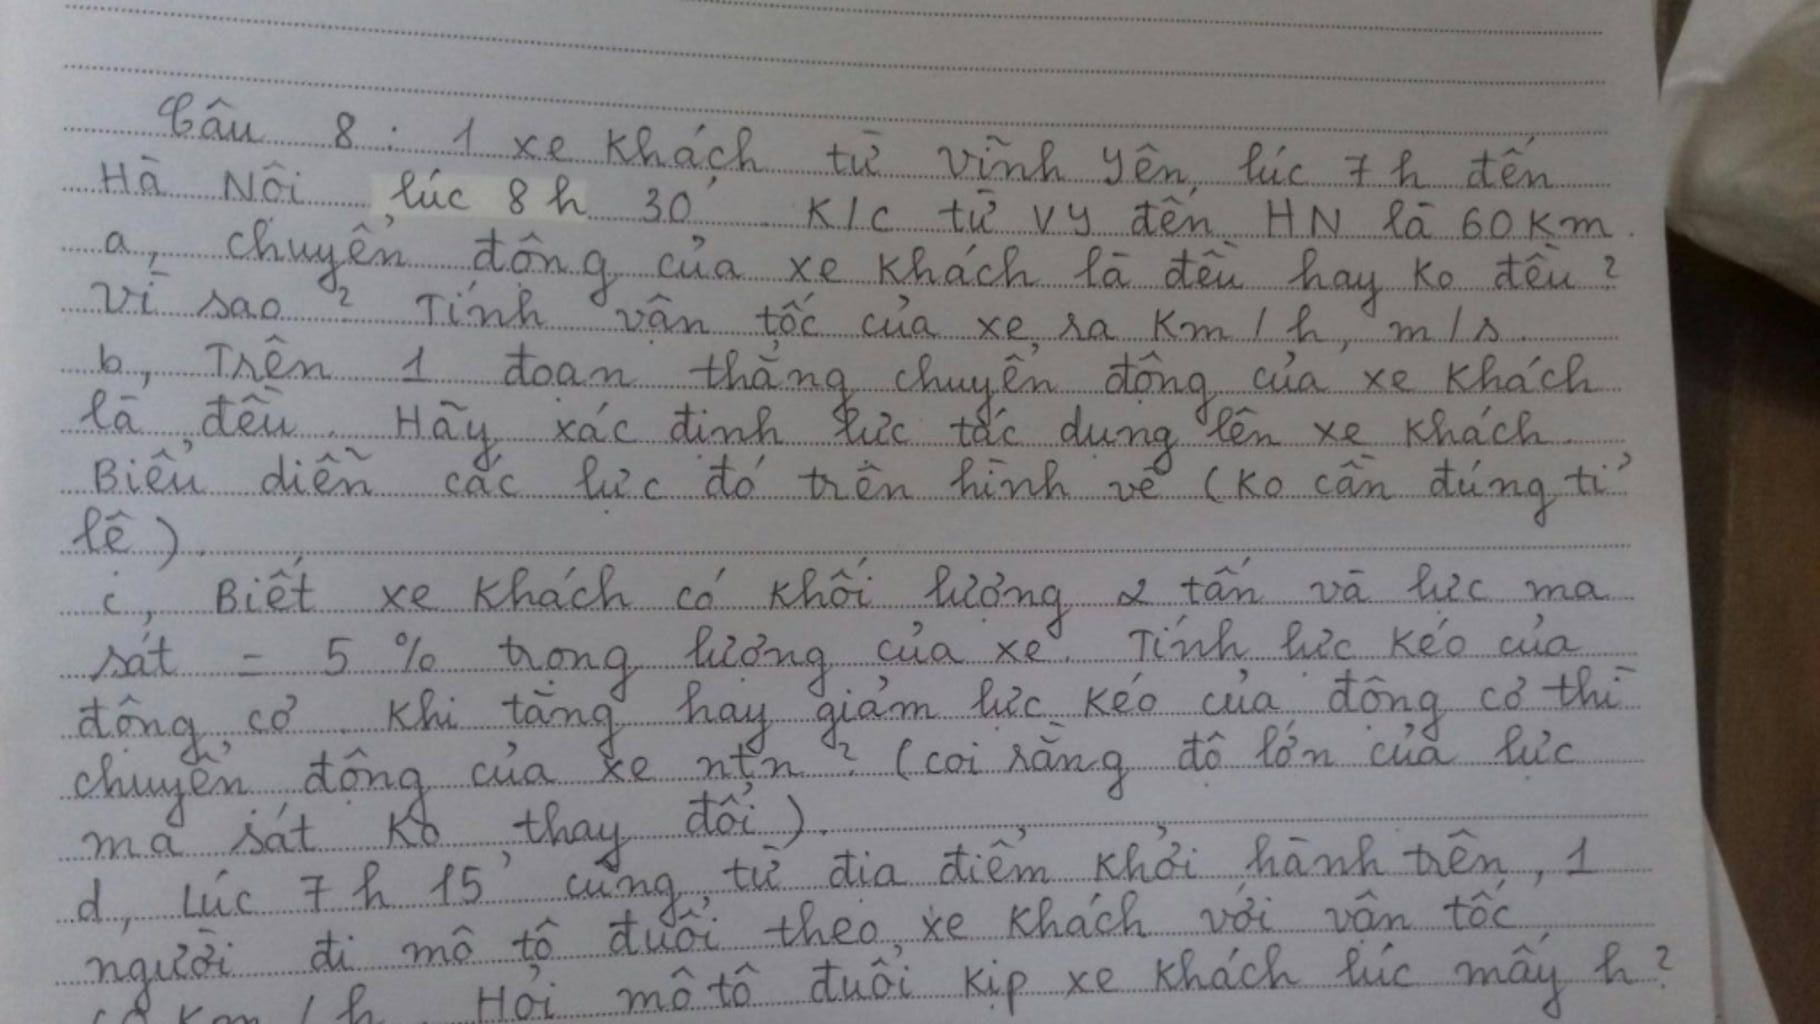 Câu 8 : 1 xe khách từ Vĩnh Yên, lúc 7h đến
Hà Nội lúc 8h 30' K/c từ VY đến HN là 60 Km.
a, chuyển động của xe khách là đều hay ko đều ?
Vì sao ? Tính vận tốc của xe ra Km/h, m/s.
b, Trên 1 đoạn thẳng chuyển động của xe khách
là đều. Hãy xác định lực tác dụng lên xe khách.
Biểu diễn các lực đó trên hình vẽ (ko cần đúng tỉ
lệ).
c, Biết xe khách có khối lượng 2 tấn và lực ma
sát = 5 % trọng lượng của xe. Tính lực kéo của
động cơ. Khi tăng hay giảm lực kéo của động cơ thì
chuyển động của xe ntn ? (coi rằng độ lớn của lực
ma sát ko thay đổi).
d, Lúc 7h 15' cũng từ địa điểm khởi hành trên, 1
người đi mô tô đuổi theo xe khách với vận tốc
Km/h. Hỏi mô tô đuổi kịp xe khách lúc mấy h ?